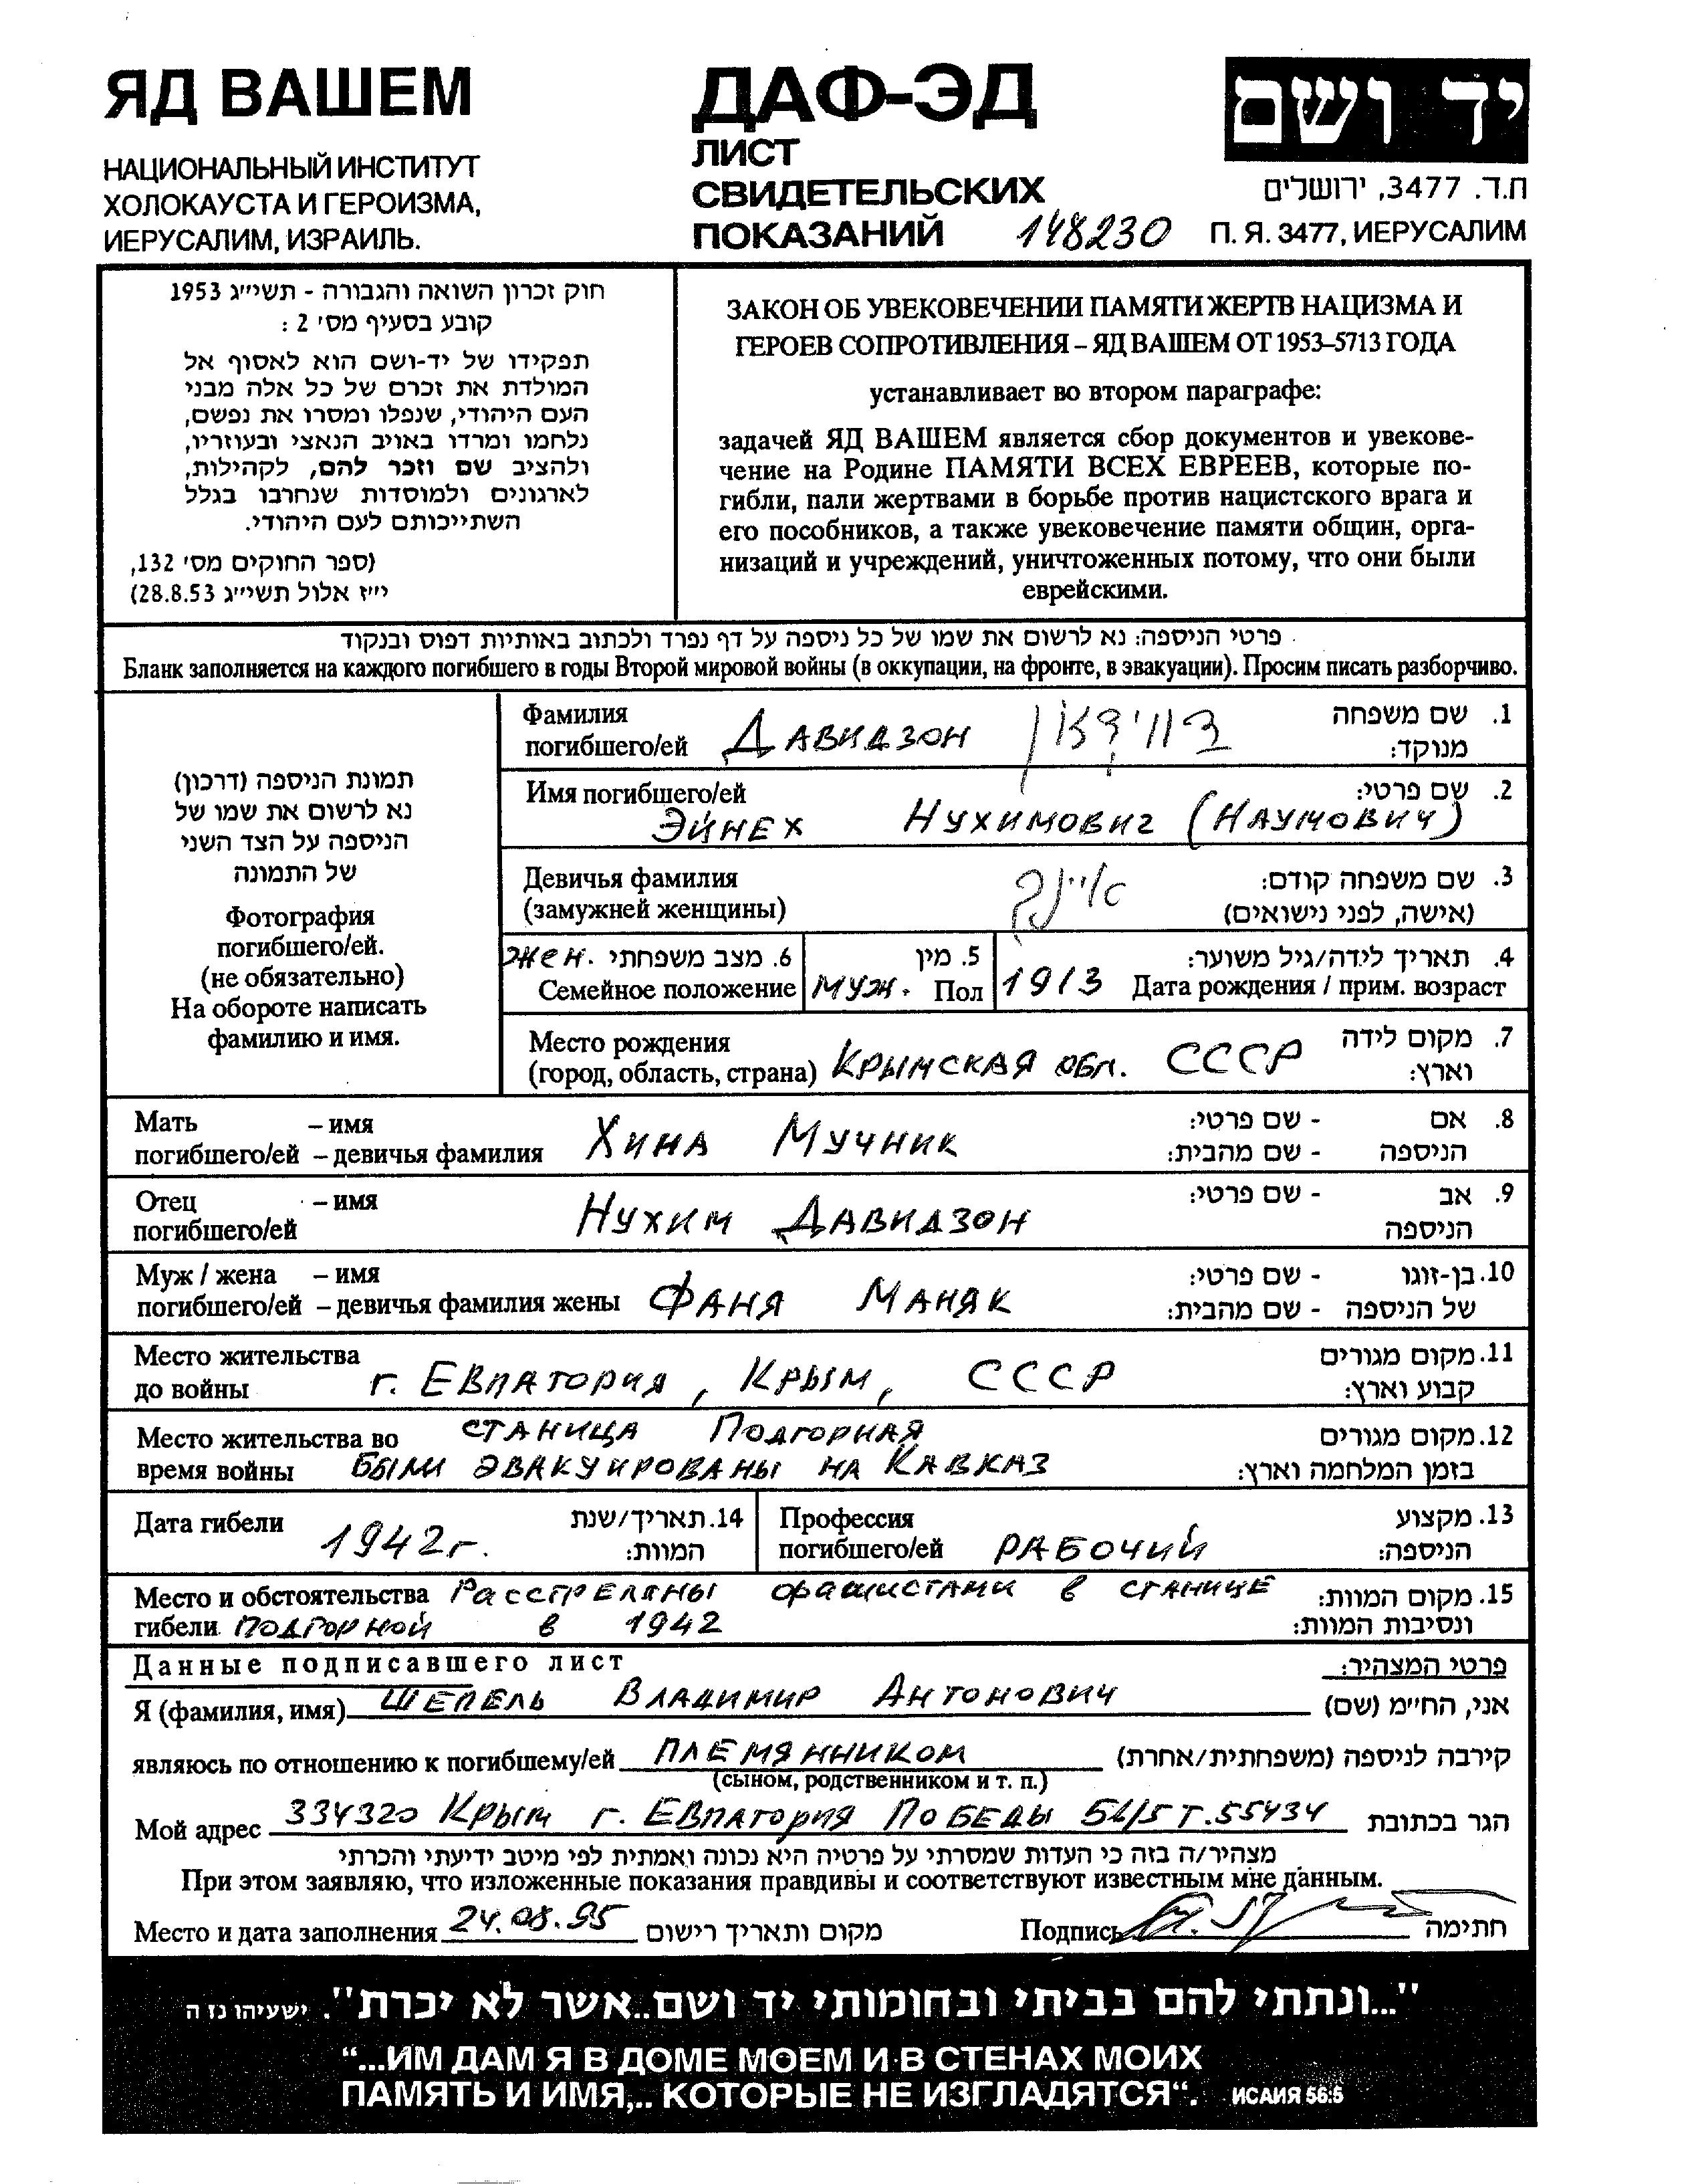 ЯД ВАШЕМ
НАЦИОНАЛЬНЫЙ ИНСТИТУТ
ХОЛОКАУСТА И ГЕРОИЗМА,
ИЕРУСАЛИМ, ИЗРАИЛЬ.
ДАФ-ЭД
ЛИСТ
СВИДЕТЕЛЬСКИХ
ПОКАЗАНИЙ 148230
יד ושם
ת.ד. 3477, ירושלים
П. Я. 3477, ИЕРУСАЛИМ
חוק זכרון השואה והגבורה - תשי״ג 1953
קובע בסעיף מס׳ 2 :
תפקידו של יד-ושם הוא לאסוף אל
המולדת את זכרם של כל אלה מבני
העם היהודי, שנפלו ומסרו את נפשם,
נלחמו ומרדו באויב הנאצי ובעוזריו,
ולהציב שם וזכר להם, לקהילות,
לארגונים ולמוסדות שנחרבו בגלל
השתייכותם לעם היהודי.
(ספר החוקים מס׳ 132,
י״ז אלול תשי״ג 28.8.53)
ЗАКОН ОБ УВЕКОВЕЧЕНИИ ПАМЯТИ ЖЕРТВ НАЦИЗМА И
ГЕРОЕВ СОПРОТИВЛЕНИЯ – ЯД ВАШЕМ ОТ 1953–5713 ГОДА
устанавливает во втором параграфе:
задачей ЯД ВАШЕМ является сбор документов и увекове-
чение на Родине ПАМЯТИ ВСЕХ ЕВРЕЕВ, которые по-
гибли, пали жертвами в борьбе против нацистского врага и
его пособников, а также увековечение памяти общин, орга-
низаций и учреждений, уничтоженных потому, что они были
еврейскими.
פרטי הניספה: נא לרשום את שמו של כל ניספה על דף נפרד ולכתוב באותיות דפוס ובנקוד
Бланк заполняется на каждого погибшего в годы Второй мировой войны (в оккупации, на фронте, в эвакуации). Просим писать разборчиво.
תמונת הניספה (דרכון)
נא לרשום את שמו של
הניספה על הצד השני
של התמונה
Фотография
погибшего/ей.
(не обязательно)
На обороте написать
фамилию и имя.
Фамилия 1. שם משפחה
погибшего/ей Давидзон דווידזון מנוקד:
Имя погибшего/ей 2. שם פרטי:
Эйнех Нухимович (Наумович)
Девичья фамилия 3. שם משפחה קודם:
(замужней женщины) איינך (אישה, לפני נישואים)
жен. 6. מצב משפחתי 5. מין 4. תאריך לידה/גיל משוער:
Семейное положение муж. Пол 1913 Дата рождения / прим. возраст
Место рождения 7. מקום לידה
(город, область, страна) Крымская обл. СССР וארץ:
Мать – имя 8. אם - שם פרטי:
погибшего/ей – девичья фамилия Хина Мучник הניספה - שם מהבית:
Отец – имя 9. אב - שם פרטי:
погибшего/ей Нухим Давидзон הניספה
Муж / жена – имя 10. בן-זוגו - שם פרטי:
погибшего/ей – девичья фамилия жены Фаня Маняк של הניספה - שם מהבית:
Место жительства 11. מקום מגורים
до войны г. Евпатория, Крым, СССР קבוע וארץ:
Место жительства во станица Подгорная 12. מקום מגורים
время войны были эвакуированы на Кавказ בזמן המלחמה וארץ:
Дата гибели 1942 г. 14. תאריך/שנת
המוות:
Профессия 13. מקצוע
погибшего/ей рабочий הניספה:
Место и обстоятельства Расстреляны фашистами в станице 15. מקום המוות:
гибели Подгорной в 1942 ונסיבות המוות:
Данные подписавшего лист פרטי המצהיר:
Я (фамилия, имя) Шепель Владимир Антонович אני, החי״מ (שם)
являюсь по отношению к погибшему/ей племянником קירבה לניספה (משפחתית/אחרת)
(сыном, родственником и т. п.)
Мой адрес 334320 Крым г. Евпатория Победы 51/5 т.55434 הגר בכתובת
מצהיר/ה בזה כי העדות שמסרתי על פרטיה היא נכונה ואמתית לפי מיטב ידיעתי והכרתי
При этом заявляю, что изложенные показания правдивы и соответствуют известным мне данным.
Место и дата заполнения 24.08.95 מקום ותאריך רישום Подпись חתימה
"...ונתתי להם בביתי ובחומותי יד ושם..אשר לא יכרת". ישעיהו נז ה
“...ИМ ДАМ Я В ДОМЕ МОЕМ И В СТЕНАХ МОИХ
ПАМЯТЬ И ИМЯ,.. КОТОРЫЕ НЕ ИЗГЛАДЯТСЯ“. ИСАИЯ 56:5